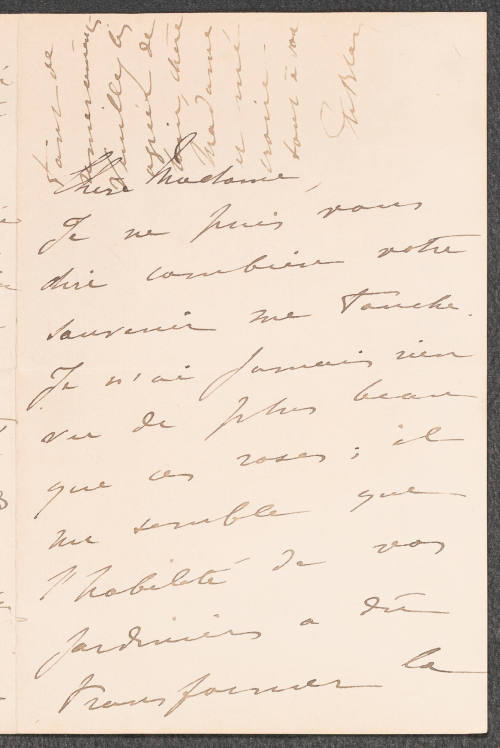 Chère Madame,
Je ne puis vous
dire combien votre
souvenir me touche.
Je n'ai jamais rien
vu de plus beau
que ces roses ; il
me semble que
l'habileté de vos
jardiniers a dû
transformer la
tant de
remerciements
veuillez
agréer
chère
Madame
et me
croire
tout à vous